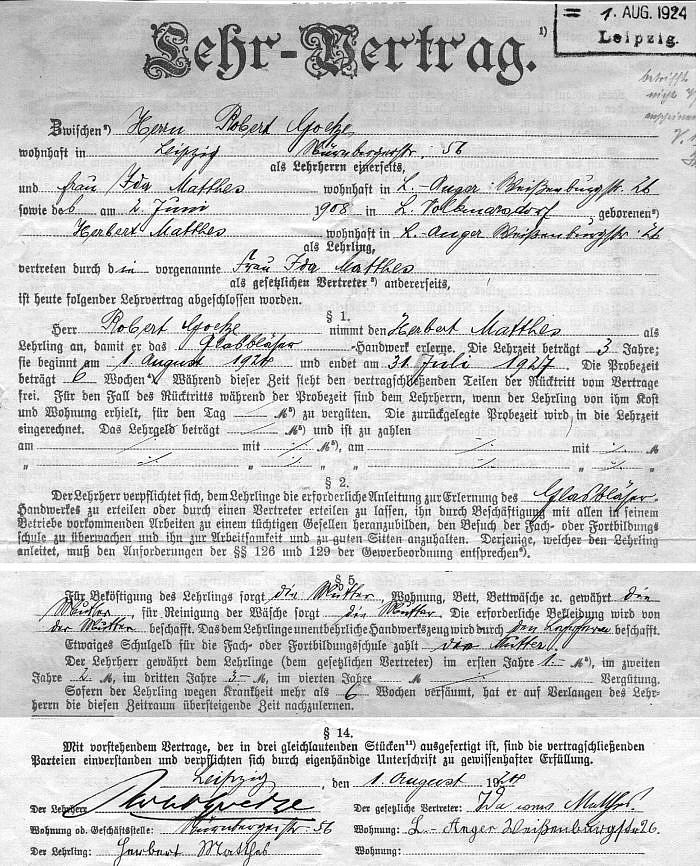 = 1. AUG. 1924
Leipzig.
Lehr-Vertrag. 1)
betrifft
nicht
Zwischen²) Herrn Robert Goetze
wohnhaft in Leipzig Nürnbergerstr. 56
als Lehrherrn einerseits,
und Frau Ida Matthes wohnhaft in L.-Anger: Weißenburgstr. 26
sowie des am 2. Juni 1908 in L. Volkmarsdorf, geborenen³)
Herbert Matthes wohnhaft in L.-Anger Weißenburgstr. 26
als Lehrling,
vertreten durch die vorgenannte Frau Ida Matthes
als gesetzlichen Vertreter⁴) andererseits,
ist heute folgender Lehrvertrag abgeschlossen worden.
§ 1.
Herr Robert Goetze nimmt den Herbert Matthes als
Lehrling an, damit er das Glasbläser-Handwerk erlerne. Die Lehrzeit beträgt 3 Jahre;
sie beginnt am 1. August 1924 und endet am 31. Juli 1927. Die Probezeit
beträgt 6 Wochen⁵). Während dieser Zeit steht den vertragschließenden Teilen der Rücktritt vom Vertrage
frei. Für den Fall des Rücktritts während der Probezeit sind dem Lehrherrn, wenn der Lehrling von ihm Kost
und Wohnung erhielt, für den Tag M⁶) zu vergüten. Die zurückgelegte Probezeit wird in die Lehrzeit
eingerechnet. Das Lehrgeld beträgt M⁶) und ist zu zahlen
am mit M⁶), am mit M
" " " " " "
§ 2.
Der Lehrherr verpflichtet sich, dem Lehrlinge die erforderliche Anleitung zur Erlernung des Glasbläser-
Handwerkes zu erteilen oder durch einen Vertreter erteilen zu lassen, ihn durch Beschäftigung mit allen in seinem
Betriebe vorkommenden Arbeiten zu einem tüchtigen Gesellen heranzubilden, den Besuch der Fach- oder Fortbildungs
schule zu überwachen und ihn zur Arbeitsamkeit und zu guten Sitten anzuhalten. Derjenige, welcher den Lehrling
anleitet, muß den Anforderungen der §§ 126 und 129 der Gewerbeordnung entsprechen⁸).
§ 5.
Für Beköstigung des Lehrlings sorgt die Mutter, Wohnung, Bett, Bettwäsche ꝛc. gewährt die
Mutter, für Reinigung der Wäsche sorgt die Mutter. Die erforderliche Bekleidung wird von
der Mutter beschafft. Das dem Lehrlinge unentbehrliche Handwerkszeug wird durch den Lehrherrn beschafft.
Etwaiges Schulgeld für die Fach- oder Fortbildungsschule zahlt die Mutter.
Der Lehrherr gewährt dem Lehrlinge (dem gesetzlichen Vertreter) im ersten Jahre 1.- M⁶), im zweiten
Jahre 2. M, im dritten Jahre 3.- M, im vierten Jahre M Vergütung.
Sofern der Lehrling wegen Krankheit mehr als 6 Wochen versäumt, hat er auf Verlangen des Lehr-
herrn die diesen Zeitraum übersteigende Zeit nachzulernen.
§ 14.
Mit vorstehendem Vertrage, der in drei gleichlautenden Stücken¹¹) ausgefertigt ist, sind die vertragschließenden
Parteien einverstanden und verpflichten sich durch eigenhändige Unterschrift zu gewissenhafter Erfüllung.
Leipzig, den 1. August 1924
Der Lehrherr Rob Goetze Der gesetzliche Vertreter: Ida Matthes.
Wohnung od. Geschäftsstelle: Nürnbergerstr 56 Wohnung: L-Anger Weißenburgstr 26.
Der Lehrling: Herbert Matthes Wohnung: